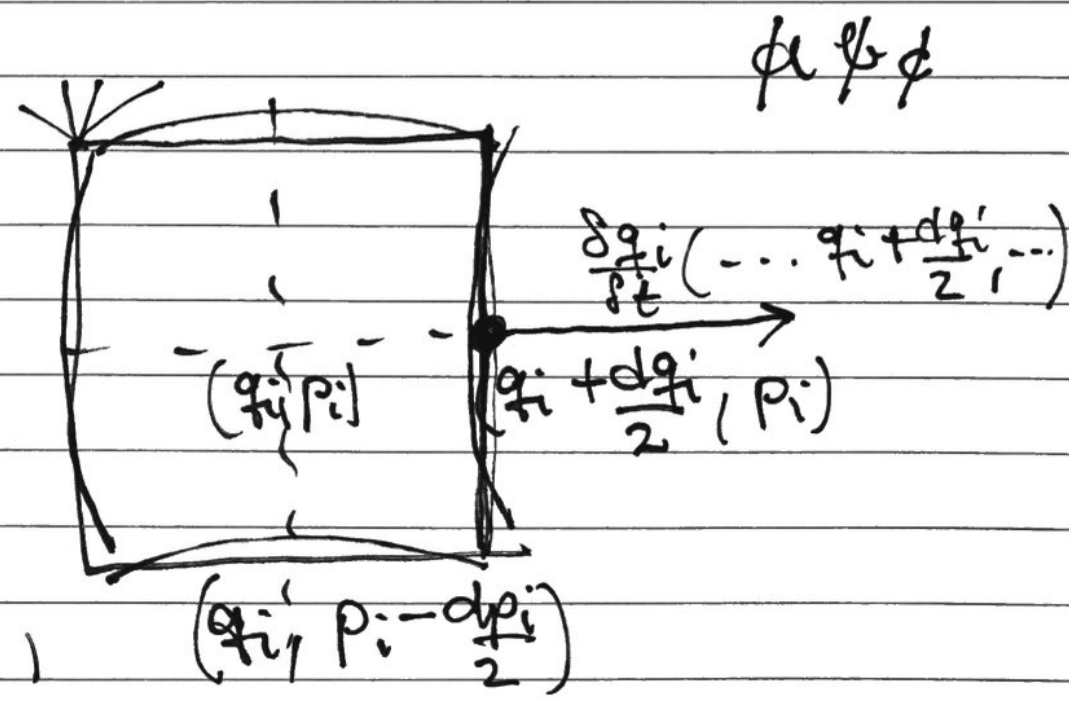 δqᵢ/δt (--- qᵢ + dqᵢ/2, ---)
(qᵢ, pᵢ)
(qᵢ + dqᵢ/2, pᵢ)
(qᵢ, pᵢ - dpᵢ/2)